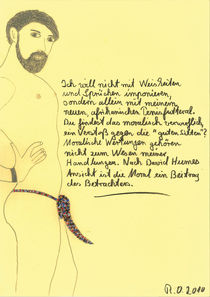 Ich will nicht mit Weisheiten
und Sprüchen imponieren,
sondern allein mit meinem
neuen, afrikanischen Penisfutteral.
Du findest das moralisch verwerflich
ein Verstoß gegen die "guten Sitten"?
Moralische Wertungen gehören
nicht zum Wesen meiner
Handlungen. Nach David Humes
Ansicht ist die Moral ein Beitrag
des Betrachters.
R.O. 2010